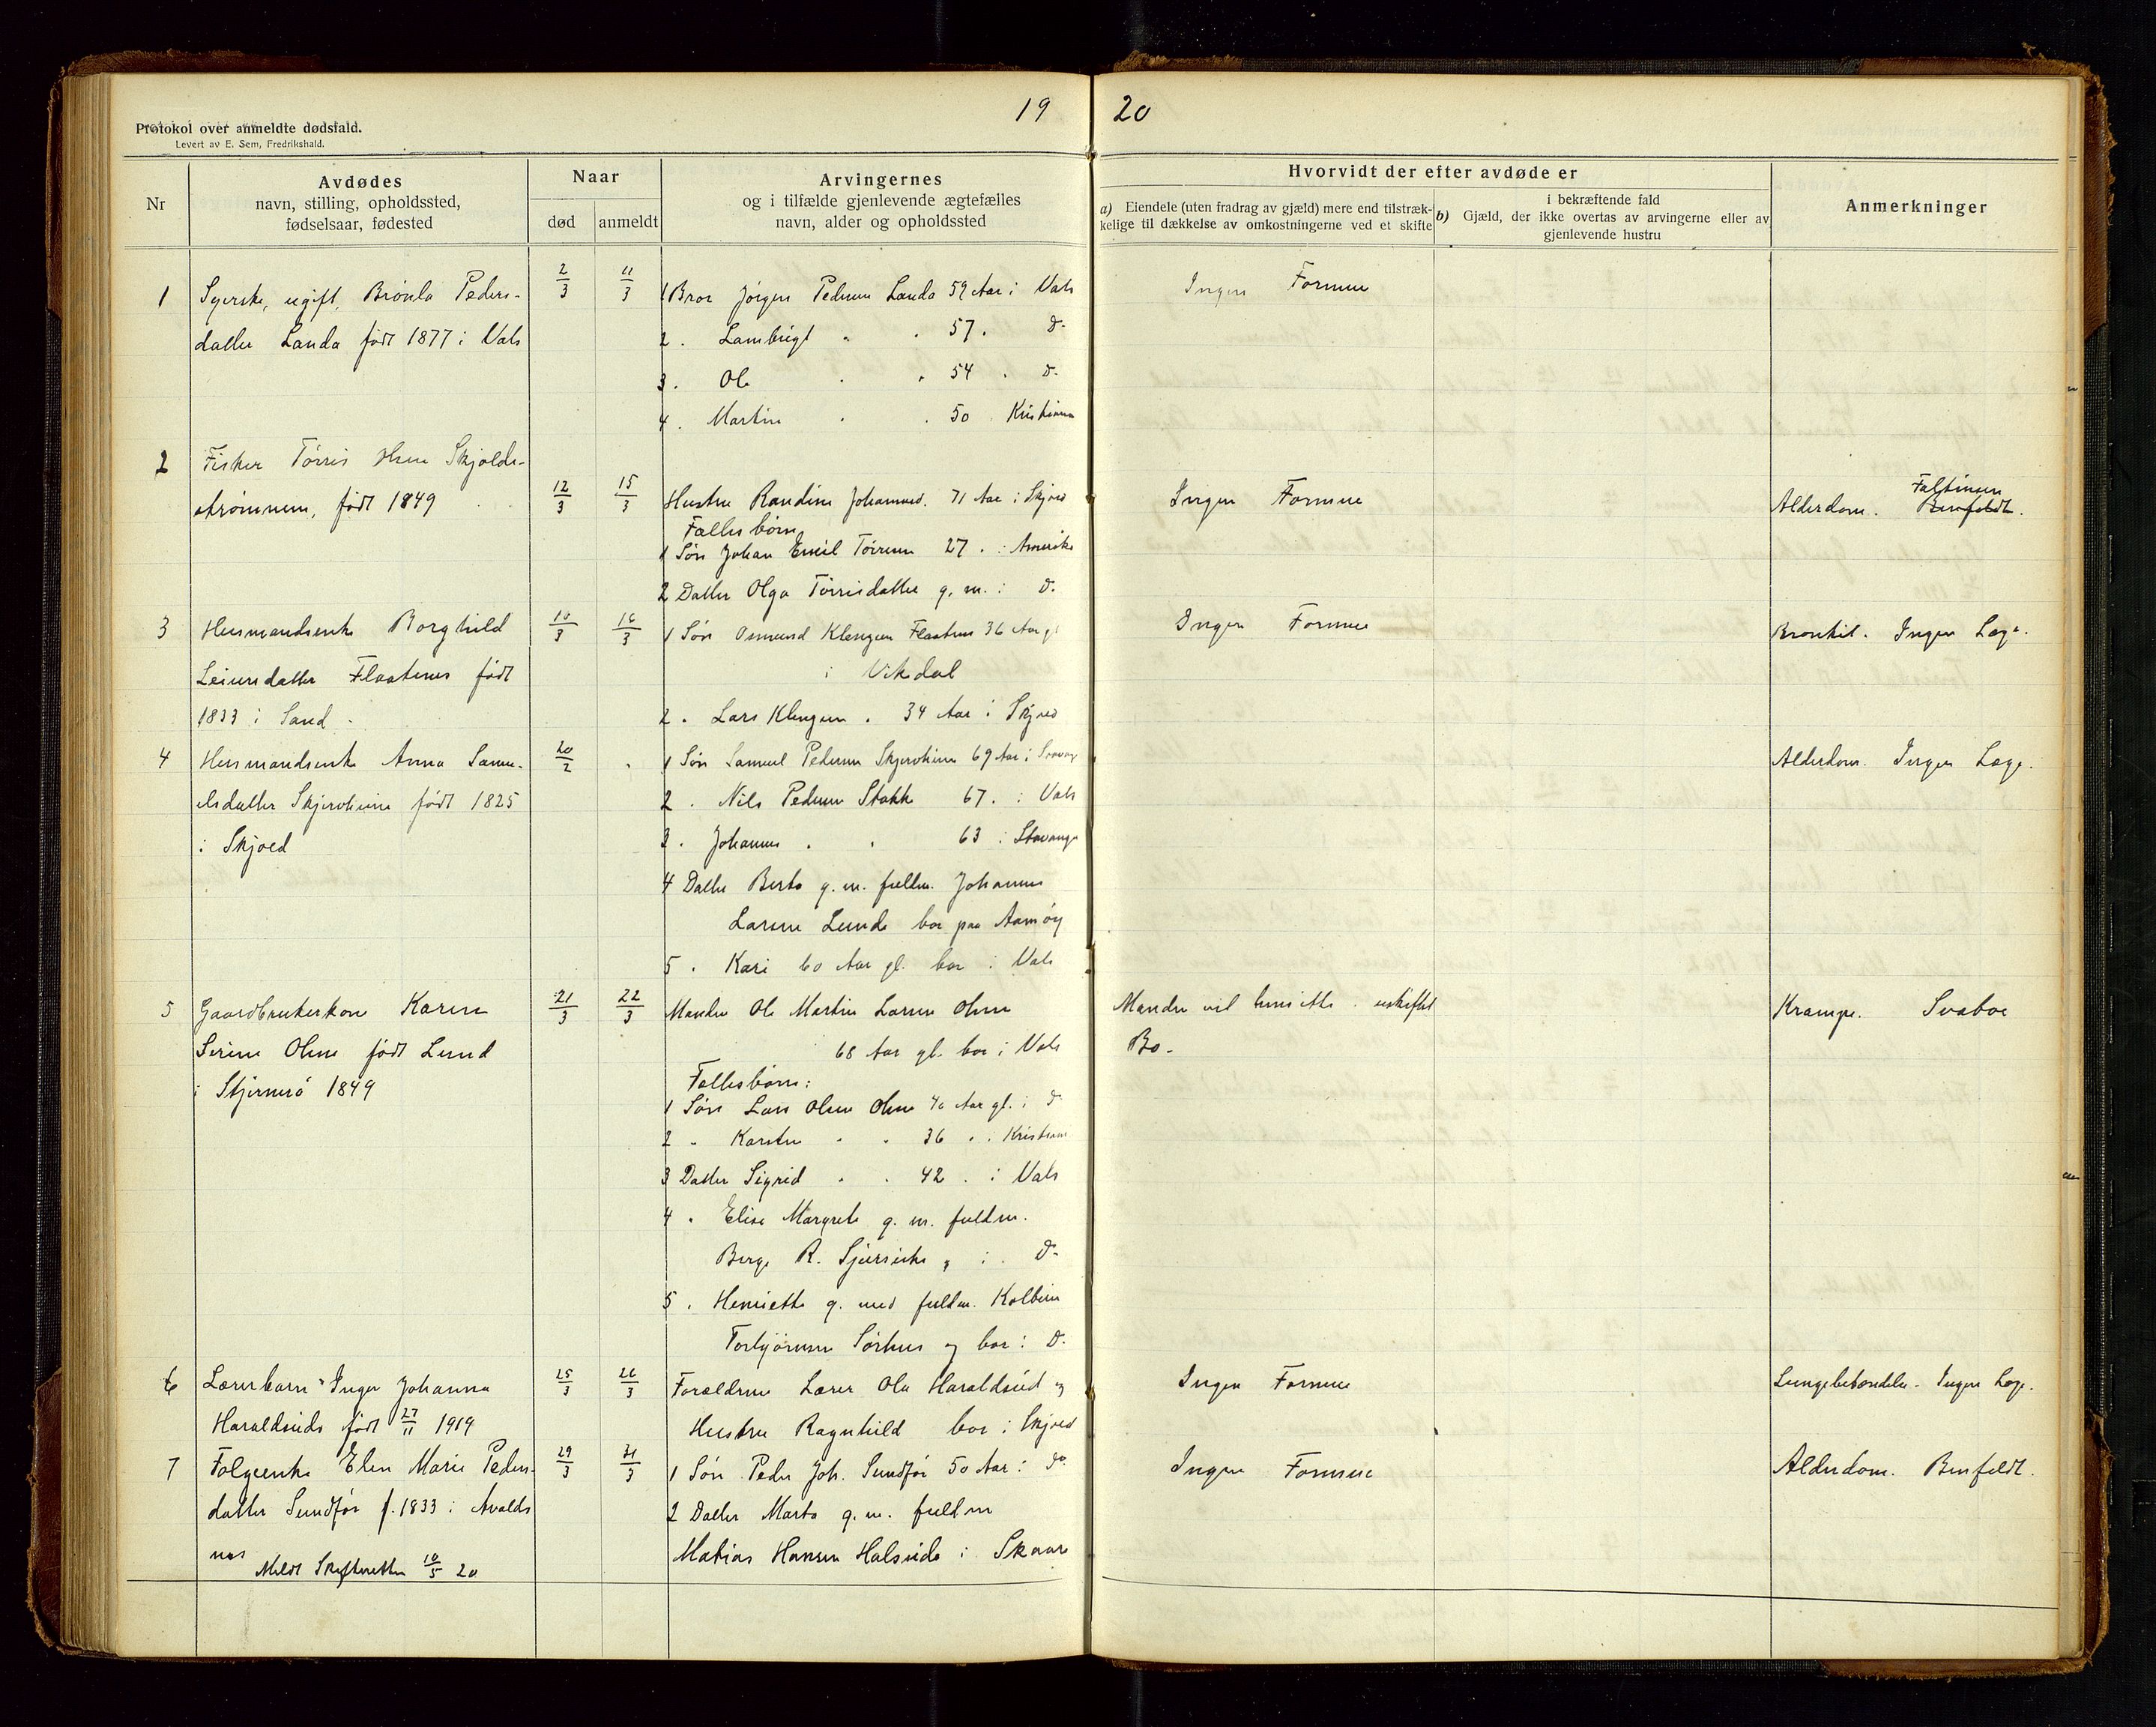 19 20
Protokol over anmeldte dødsfald.
Levert av E. Sem, Fredrikshald.
Nr
Avdødes
navn, stilling, opholdssted,
fødselsaar, fødested
Naar
død
anmeldt
Arvingernes
og i tilfælde gjenlevende ægtefælles
navn, alder og opholdssted
Hvorvidt der efter avdøde er
a) Eiendele (uten fradrag av gjæld) mere end tilstræk-
kelige til dækkelse av omkostningerne ved et skifte
i bekræftende fald
b) Gjæld, der ikke overtas av arvingerne eller av
gjenlevende hustru
Anmerkninger
1 Syerske, ugift, Brønla Peders-
datter Landa født 1877 i Vats
2/3 11/3
1 Bror Jørgen Pedersen Landa 59 Aar i Vats
2 . Lambrigt " . 57 . d.
3 . Ole . . 54 . d.
4 . Martin . . 50 . Kristiania
Ingen Formue
2 Fisker Tørris Olsen Skjolds-
strømmen, født 1849
12/3 15/3
Hustru Randine Johannesd. 71 Aar i Skjold
Fællesbørn
1 Søn Johan Emil Tørresen 27 . i Amerika
2 Datter Olga Tørrisdatter g. m. i d.
Ingen Formue
Alderdom. Benfeldt.
Faltinsen
3 Husmandsenke Borghild
Leiursdatter Flaatenes født
1833 i Sand
10/3 16/3
1 Søn Osmund Klengsen Flaatnes 36 Aar gl
i Vikedal
2 . Lars Klengsen . 34 Aar i Skjold
Ingen Formue
Bronkit. Ingen Læge.
4 Husmandsenke Anna Samu-
elsdatter Skjersheim født 1825
i Skjold
20/2 .
1 Søn Samuel Pedersen Skjersheim 69 Aar i Stavang
2 . Nils Pedersen Stakke 67 . i Vats
3 . Johannes . . 63 i Stavanger
4 Datter Berta g. m. fuldm. Johannes
Larsen Lunde bor paa Aamøy
5 . Kari 60 Aar gl. bor i Vats
Alderdom. Ingen Læge.
5 Gaardbrukerkone Karen
Serine Olsen født Lund
i Stjernerø 1849
21/3 22/3
Manden Ole Martin Larsen Olsen
68 Aar gl. bor i Vats
Fællesbørn:
1 Søn Lars Olsen Olsen 40 Aar gl. i d
2 " Karsten . . 36 . . Kristians
3 Datter Sigrid . . 42 . i Vats
4 . Elise Margrete g. m. fuldm.
Berge R. i d.
5 . Henriette g. med fuldm. Kolbein
Torbjørnsen Sørhus og bor i d.
Manden vil hensitte i uskiftet
Bo.
Krampe. Svaboe
6 Lærerbarn Inger Johanna
Haraldseids født 27/11 1919
25/3 26/3
Forældrene Lærer Ola Haraldseid og
Hustru Ragnhild bor i Skjold
Ingen Formue
Lungebetændelse. Ingen Læge.
7 Følgeenke Elen Marie Peders-
datter Sundfør f. 1833 i Avalds
nes
29/3 31/3
1 Søn Peder Joh. Sundfør 50 Aar i do
2 Datter Marta g. m. fuldm
Matias Hansen Halseide i Skaare
Ingen Formue
Alderdom. Benfeldt.
Meldt Skifteretten 10/5 20